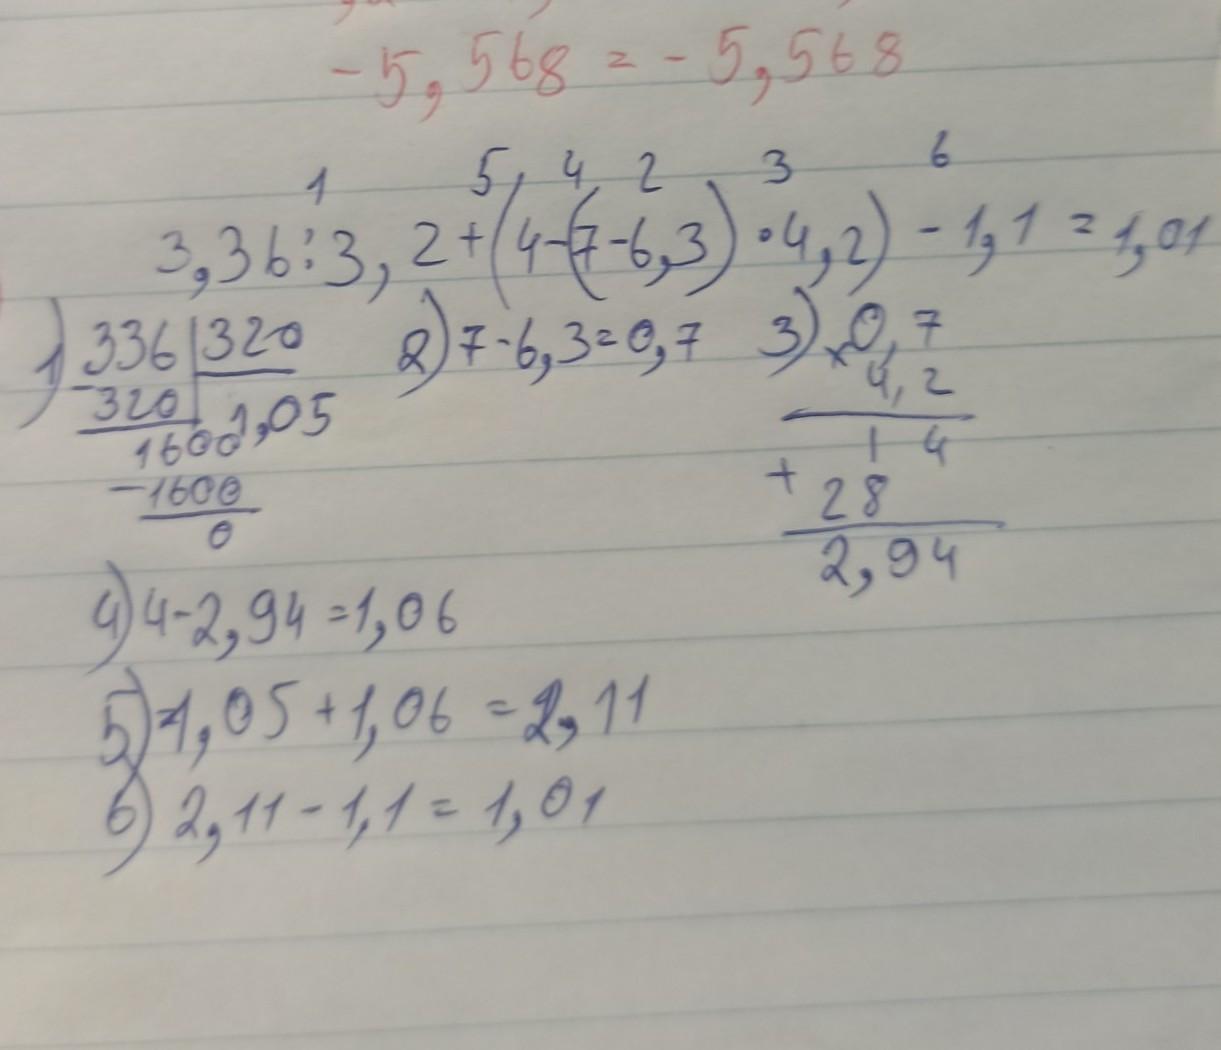 -5,568 = -5,568
1 5 4 2 3 6
3,36:3,2+(4-(7-6,3)·4,2)-1,1=1,01
1) 336 320 2) 7-6,3=0,7 3) 0,7
-320 1,05 × 4,2
1600 1 4
-1600 + 28
0 2,94
4) 4-2,94=1,06
5) 1,05+1,06=2,11
6) 2,11-1,1=1,01